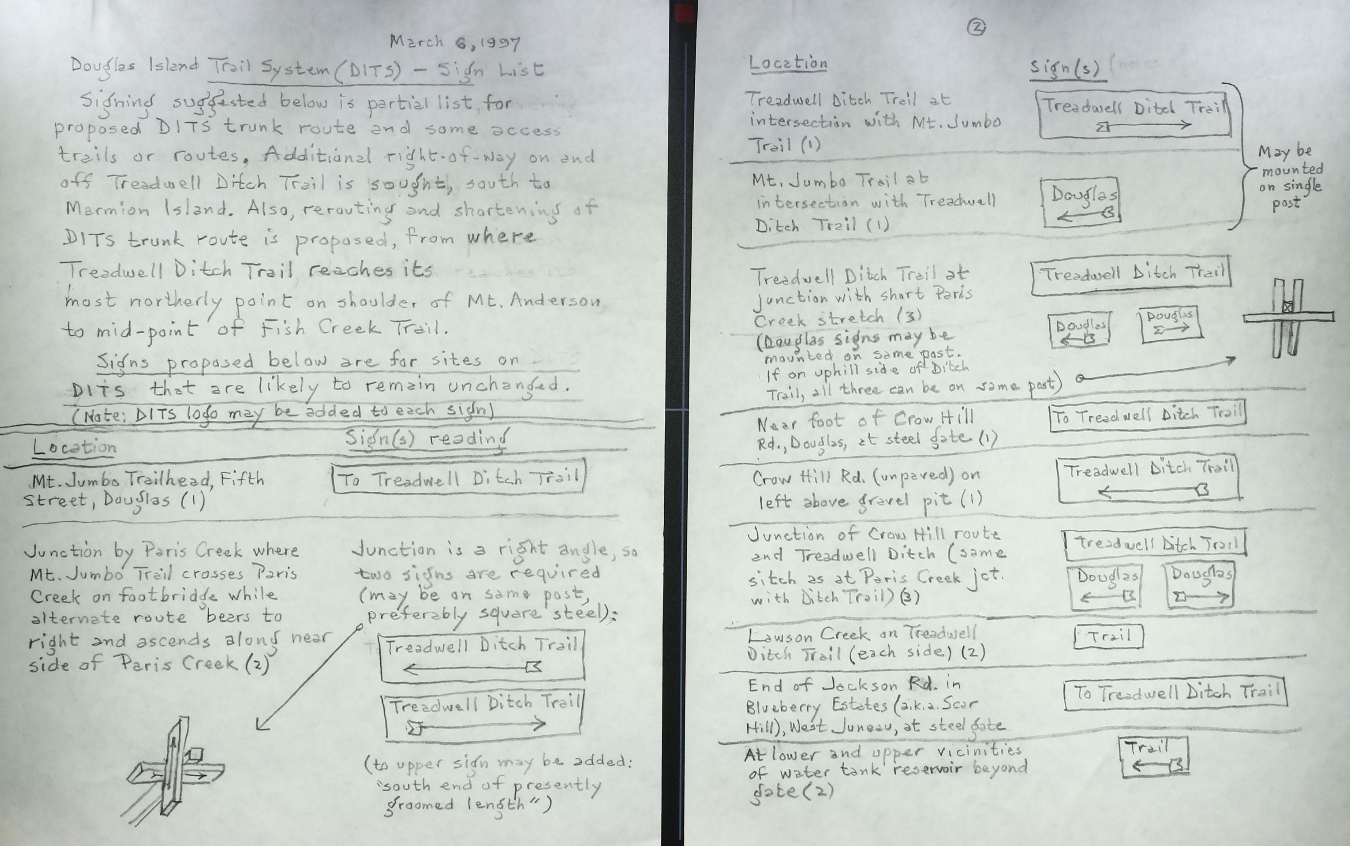 March 6, 1997
Douglas Island Trail System (DITS) — Sign List
Signing suggested below is partial list, for
proposed DITS trunk route and some access
trails or routes. Additional right-of-way on and
off Treadwell Ditch Trail is sought, south to
Marmion Island. Also, rerouting and shortening of
DITS trunk route is proposed, from where
Treadwell Ditch Trail reaches its
most northerly point on shoulder of Mt. Anderson,
to mid-point of Fish Creek Trail.
Signs proposed below are for sites on
DITS that are likely to remain unchanged.
(Note: DITS logo may be added to each sign)
Location
Sign(s) reading
Mt. Jumbo Trailhead, Fifth
Street, Douglas (1)
To Treadwell Ditch Trail
Junction by Paris Creek where
Mt. Jumbo Trail crosses Paris
Creek on footbridge while
alternate route bears to
right and ascends along near
side of Paris Creek (2)
Junction is a right angle, so
two signs are required
(may be on same post,
preferably square steel):
Treadwell Ditch Trail
Treadwell Ditch Trail
(to upper sign may be added:
"south end of presently
groomed length")
2
Location
Sign(s)
Treadwell Ditch Trail at
intersection with Mt. Jumbo
Trail (1)
Treadwell Ditch Trail
Mt. Jumbo Trail at
intersection with Treadwell
Ditch Trail (1)
Douglas
May be
mounted
on single
post
Treadwell Ditch Trail at
junction with short Paris
Creek stretch (3)
(Douglas signs may be
mounted on same post.
If on uphill side of Ditch
Trail, all three can be on same post)
Treadwell Ditch Trail
Douglas
Douglas
Near foot of Crow Hill
Rd., Douglas, at steel gate (1)
To Treadwell Ditch Trail
Crow Hill Rd. (unpaved) on
left above gravel pit (1)
Treadwell Ditch Trail
Junction of Crow Hill route
and Treadwell Ditch (same
sitch as at Paris Creek jct.
with Ditch Trail) (3)
Treadwell Ditch Trail
Douglas
Douglas
Lawson Creek on Treadwell
Ditch Trail (each side) (2)
Trail
End of Jackson Rd. in
Blueberry Estates (a.k.a. Scar
Hill), West Juneau, at steel gate
To Treadwell Ditch Trail
At lower and upper vicinities
of water tank reservoir beyond
gate (2)
Trail